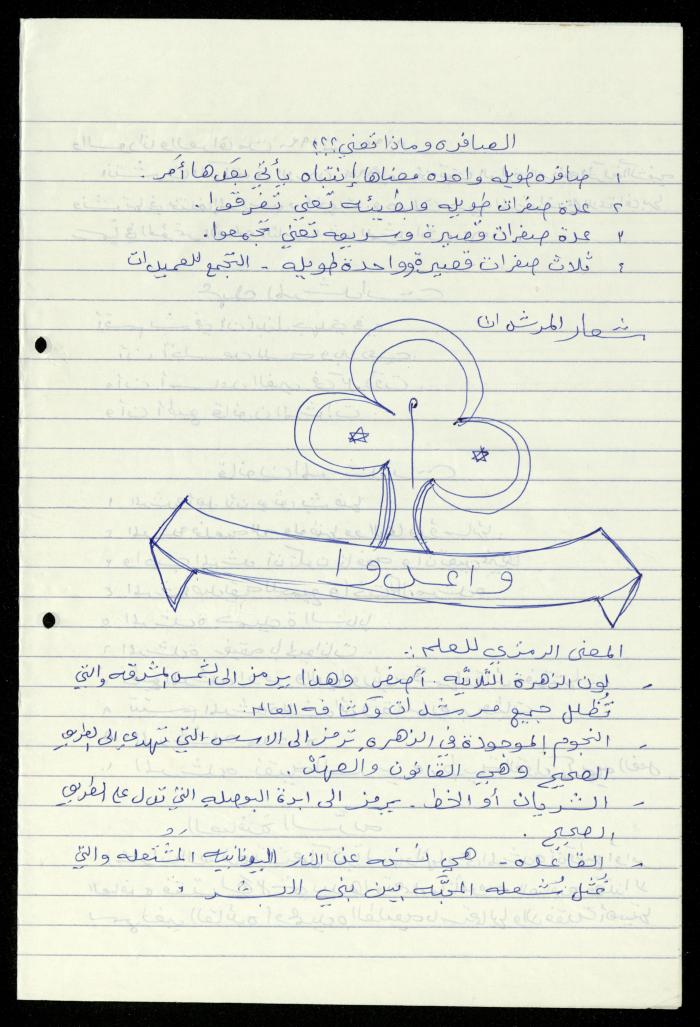 الصافره وماذا تعني؟؟؟
١ صافره طويله واحده معناها إنتباه يأتي بعدها أمر.
٢ عدة صفرات طويله وبطيئه تعني تفرقوا
٣ عدة صفرات قصيرة وسريعه تعني تجمعوا.
٤ ثلاث صفرات قصيرة وواحدة طويله - التجمع للعميدات
شعار المرشدات
واعدوا
المعنى الرمزي للعلم:
- لون الزهرة الثلاثيه. أصفر وهذا يرمز الى الشمس المشرقه والتي
تُظلل جميع مرشدات وكشافه العالم
- النجوم الموجودة في الزهره ترمز الى الاسس التي تهدي الى الطريق
الصحيح وهي القانون والعهد.
- الشريان أو الخط. يرمز الى ابرة البوصله التي تدل على الطريق
الصحيح.
- القاعده - هي نسخه عن النار اليونانيه المشتعله والتي
تمثل شعله المحبَّه بين بني البشر.